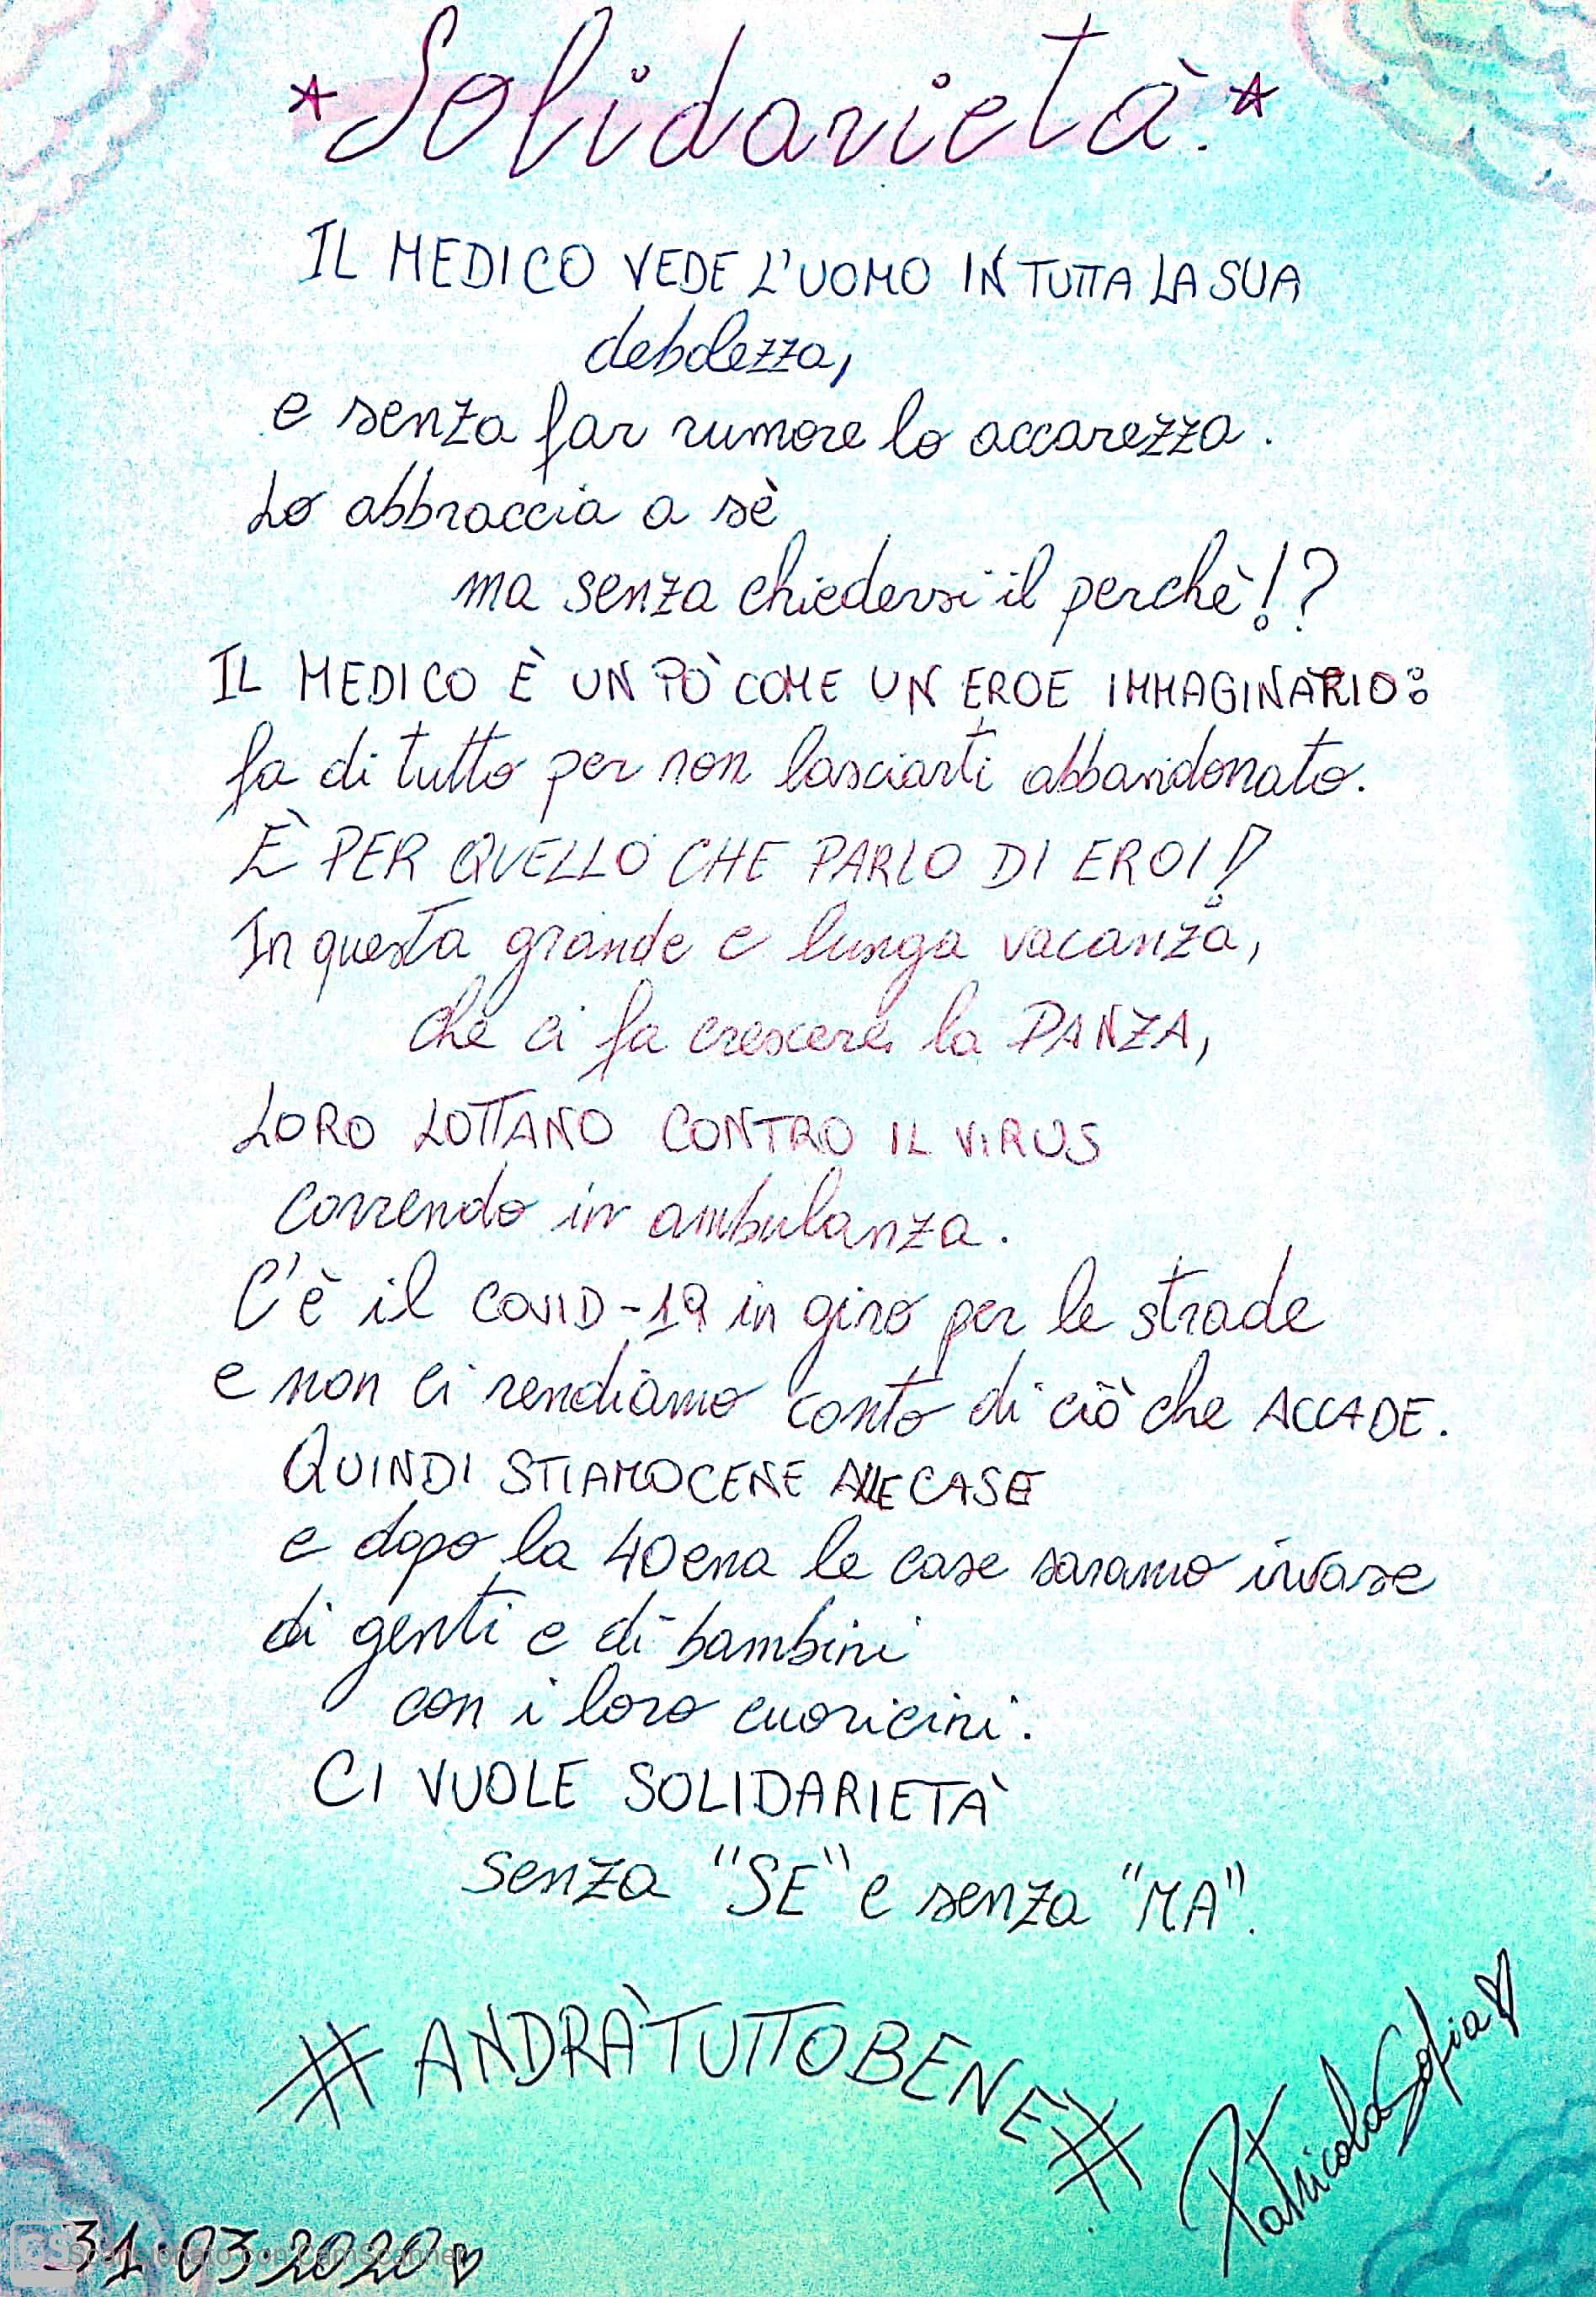 *Solidarietà.*
IL MEDICO VEDE L'UOMO IN TUTTA LA SUA
debolezza,
e senza far rumore lo accarezza.
Lo abbraccia a sè
ma senza chiedersi il perchè!?
IL MEDICO È UN PÒ COME UN EROE IMMAGINARIO:
fa di tutto per non lasciarti abbandonato.
È PER QUELLO CHE PARLO DI EROI!
In questa grande e lunga vacanza,
che ci fa crescere la PANZA,
LORO LOTTANO CONTRO IL VIRUS
correndo in ambulanza.
C'è il COVID-19 in giro per le strade
e non ci rendiamo conto di ciò che ACCADE.
QUINDI STIAMOCENE ALLE CASE
e dopo la 40ena le case saranno invase
di genti e di bambini
con i loro cuoricini.
CI VUOLE SOLIDARIETÀ
senza "SE" e senza "MA".
#ANDRÀTUTTOBENE#
Patricola Sofia
31.03.2020
CS Scansionato con CamScanner